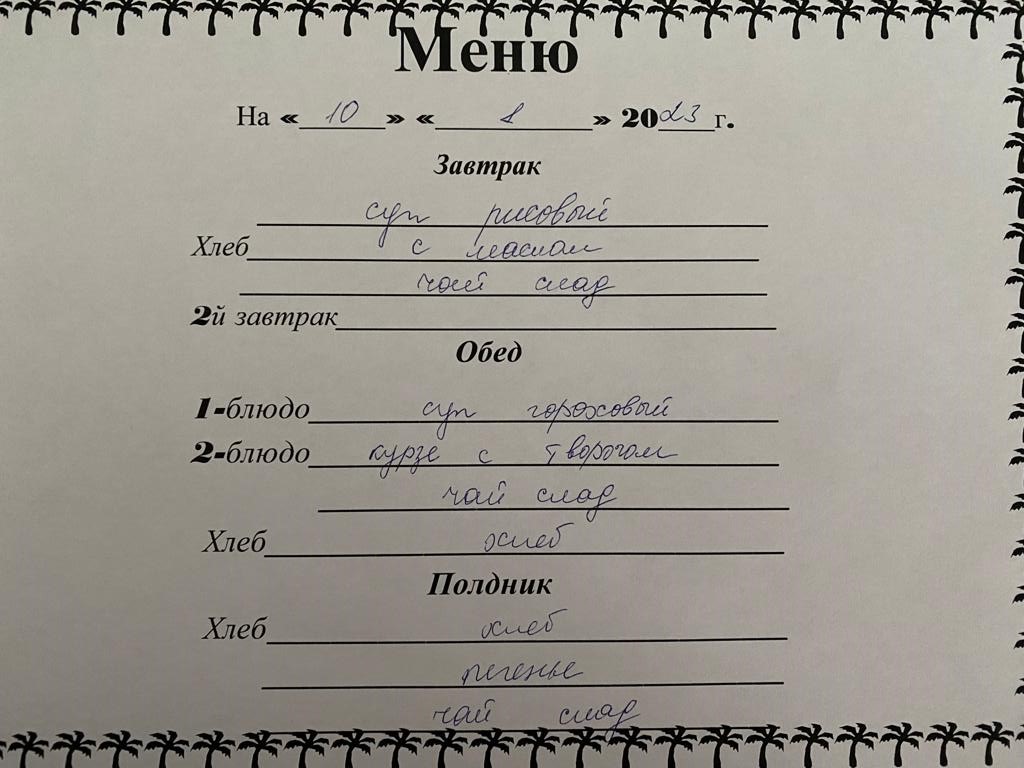 Меню
На «10» «1» 2023г.
Завтрак
суп рисовый
Хлеб с маслом
чай слад
2й завтрак
Обед
1-блюдо суп гороховый
2-блюдо курзе с творогом
чай слад
Хлеб хлеб
Полдник
Хлеб хлеб
печенье
чай слад